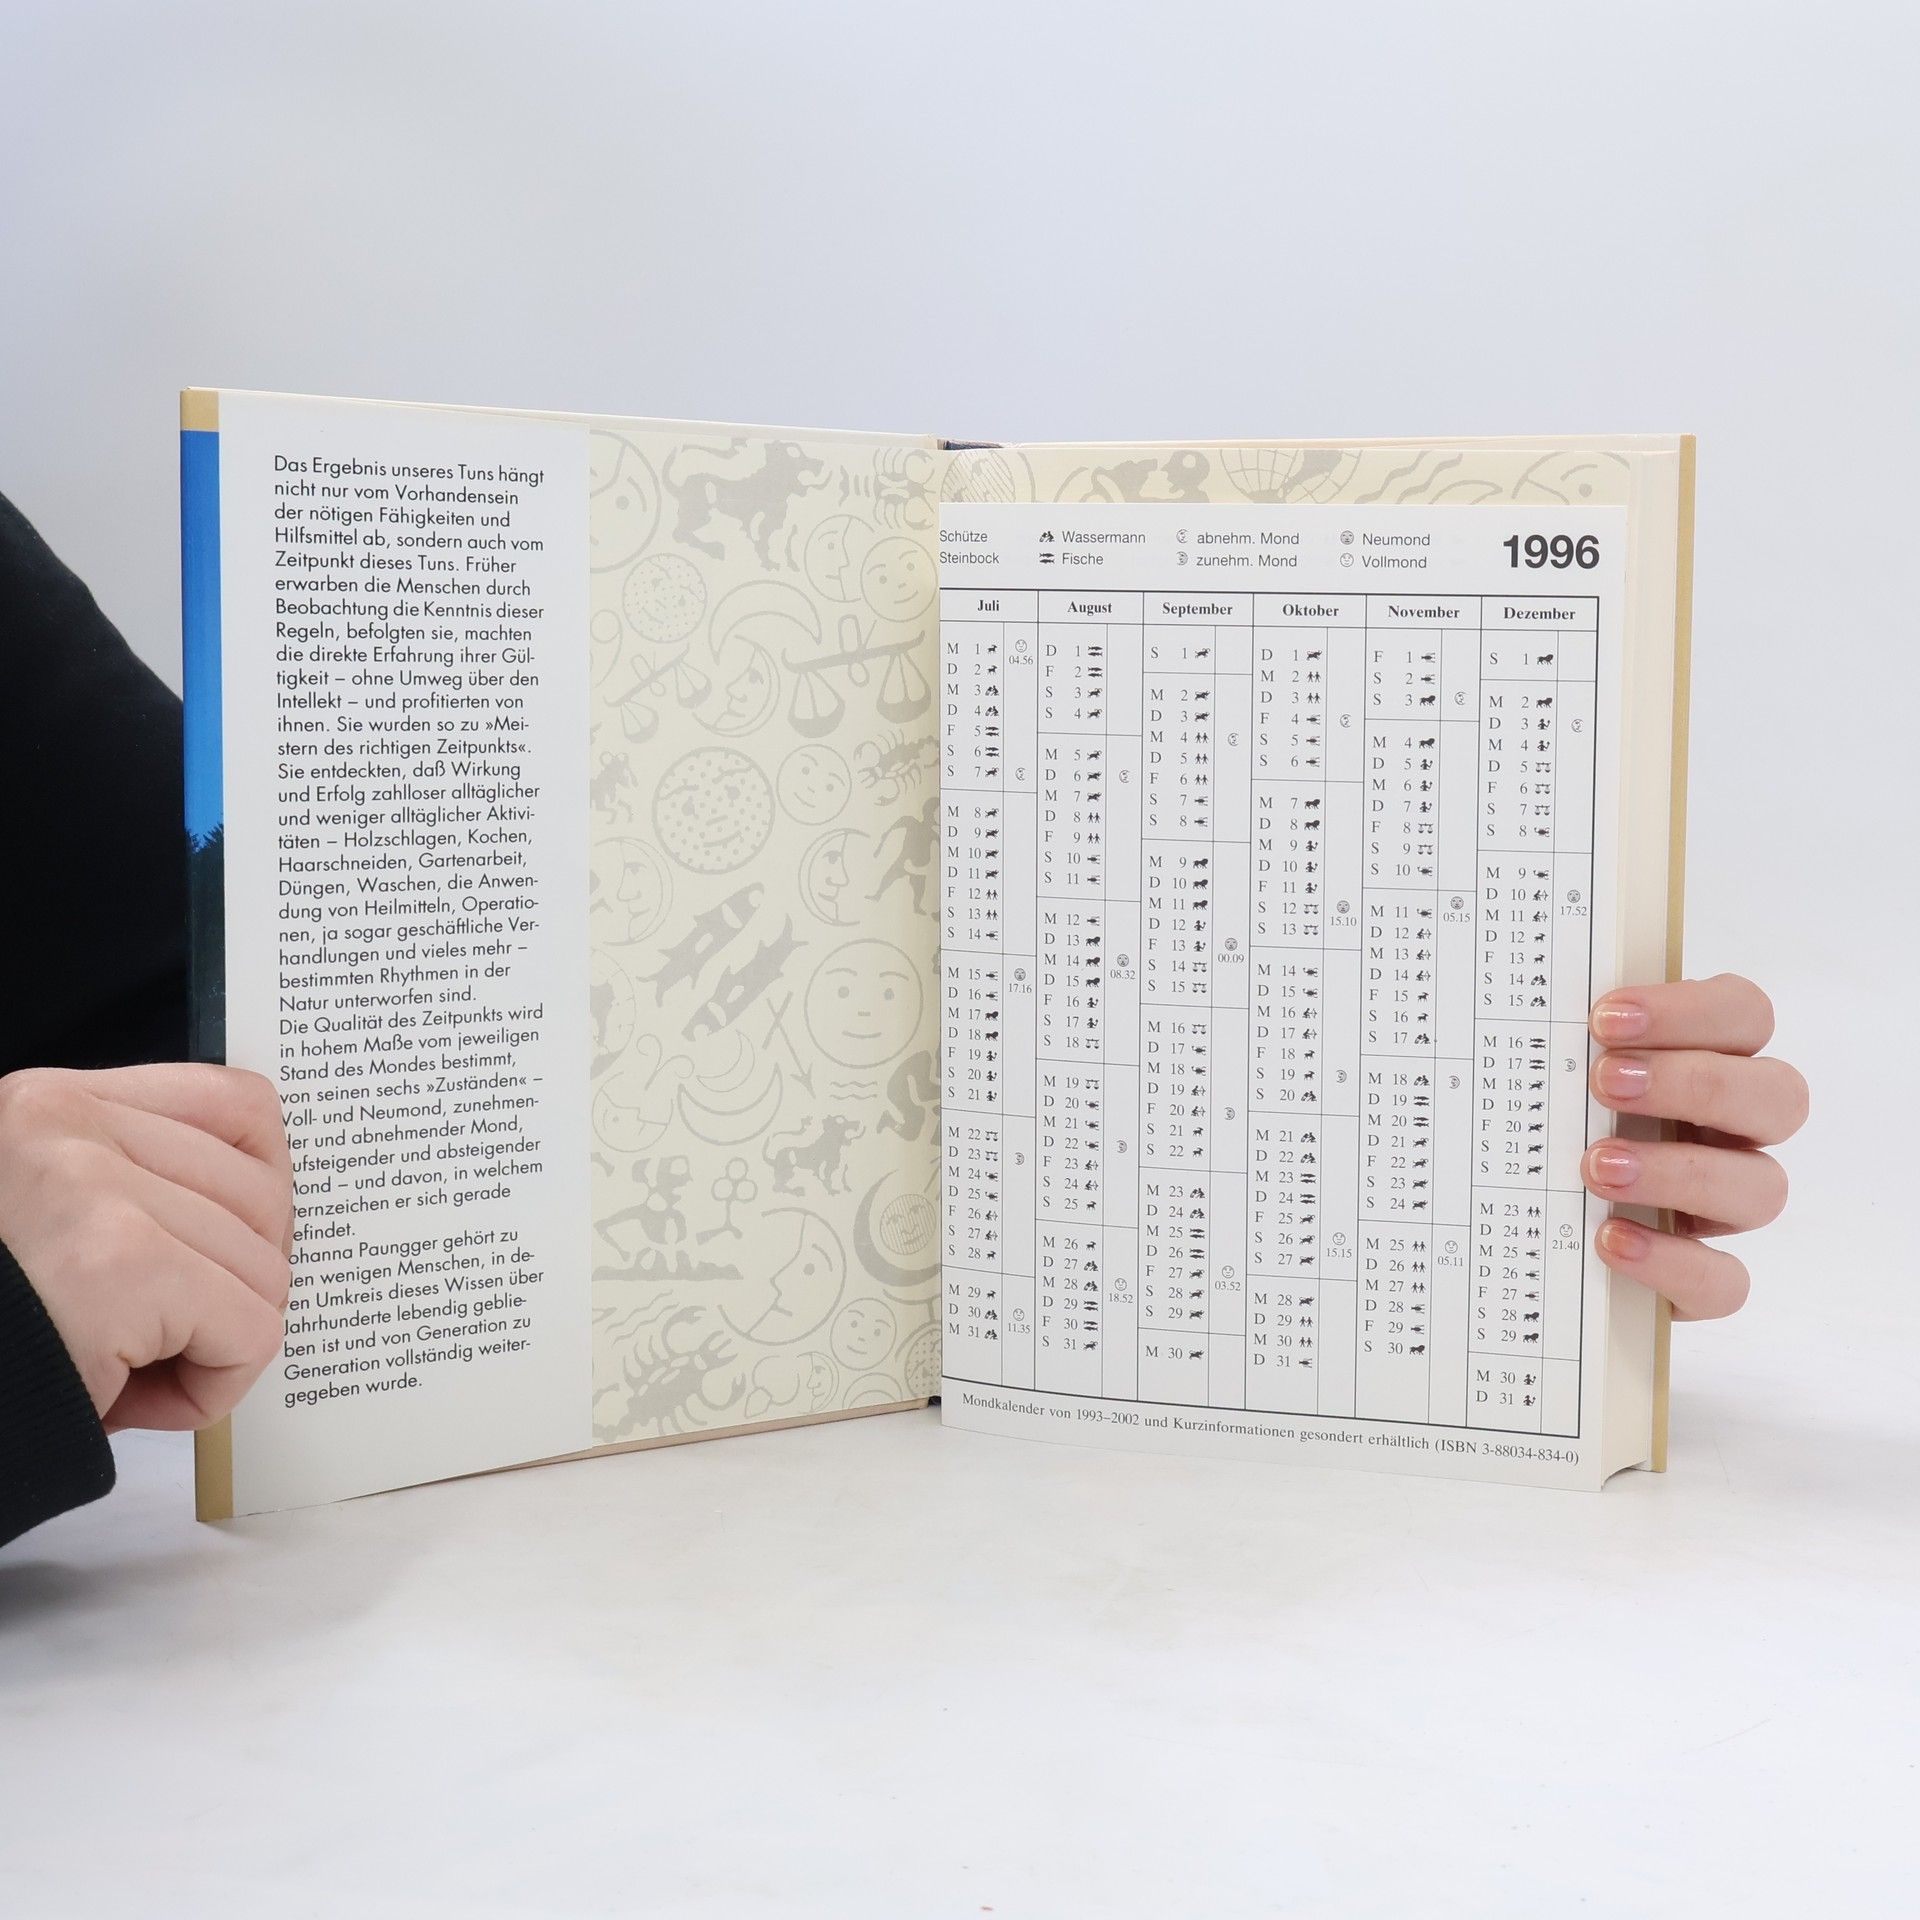 Das Ergebnis unseres Tuns hängt
nicht nur vom Vorhandensein
der nötigen Fähigkeiten und
Hilfsmittel ab, sondern auch vom
Zeitpunkt dieses Tuns. Früher
erwarben die Menschen durch
Beobachtung die Kenntnis dieser
Regeln, befolgten sie, machten
die direkte Erfahrung ihrer Gül-
tigkeit – ohne Umweg über den
Intellekt – und profitierten von
ihnen. Sie wurden so zu »Mei-
stern des richtigen Zeitpunkts«.
Sie entdeckten, daß Wirkung
und Erfolg zahlloser alltäglicher
und weniger alltäglicher Aktivi-
täten – Holzschlagen, Kochen,
Haarschneiden, Gartenarbeit,
Düngen, Waschen, die Anwen-
dung von Heilmitteln, Operatio-
nen, ja sogar geschäftliche Ver-
handlungen und vieles mehr –
bestimmten Rhythmen in der
Natur unterworfen sind.
Die Qualität des Zeitpunkts wird
in hohem Maße vom jeweiligen
Stand des Mondes bestimmt,
von seinen sechs »Zuständen« –
Voll- und Neumond, zunehmen-
der und abnehmender Mond,
ufsteigender und absteigender
Mond – und davon, in welchem
ternzeichen er sich gerade
efindet.
ohanna Paungger gehört zu
den wenigen Menschen, in de-
ren Umkreis dieses Wissen über
Jahrhunderte lebendig geblie-
ben ist und von Generation zu
Generation vollständig weiter-
gegeben wurde.
Schütze Wassermann abnehm. Mond Neumond 1996
Steinbock Fische zunehm. Mond Vollmond
Juli
M 1 04.56
D 2
M 3
D 4
F 5
S 6
S 7
M 8
D 9
M 10
D 11
F 12
S 13
S 14
M 15 17.16
D 16
M 17
D 18
F 19
S 20
S 21
M 22
D 23
M 24
D 25
F 26
S 27
S 28
M 29
D 30 11.35
M 31
August
D 1
F 2
S 3
S 4
M 5
D 6
M 7
D 8
F 9
S 10
S 11
M 12
D 13
M 14 08.32
D 15
F 16
S 17
S 18
M 19
D 20
M 21
D 22
F 23
S 24
S 25
M 26
D 27
M 28 18.52
D 29
F 30
S 31
September
S 1
M 2
D 3
M 4
D 5
F 6
S 7
S 8
M 9
D 10
M 11
D 12
F 13 00.09
S 14
S 15
M 16
D 17
M 18
D 19
F 20
S 21
S 22
M 23
D 24
M 25
D 26
F 27 03.52
S 28
S 29
M 30
Oktober
D 1
M 2
D 3
F 4
S 5
S 6
M 7
D 8
M 9
D 10
F 11
S 12 15.10
S 13
M 14
D 15
M 16
D 17
F 18
S 19
S 20
M 21
D 22
M 23
D 24
F 25
S 26 15.15
S 27
M 28
D 29
M 30
D 31
November
F 1
S 2
S 3
M 4
D 5
M 6
D 7
F 8
S 9
S 10
M 11 05.15
D 12
M 13
D 14
F 15
S 16
S 17
M 18
D 19
M 20
D 21
F 22
S 23
S 24
M 25 05.11
D 26
M 27
D 28
F 29
S 30
Dezember
S 1
M 2
D 3
M 4
D 5
F 6
S 7
S 8
M 9
D 10 17.52
M 11
D 12
F 13
S 14
S 15
M 16
D 17
M 18
D 19
F 20
S 21
S 22
M 23
D 24 21.40
M 25
D 26
F 27
S 28
S 29
M 30
D 31
Mondkalender von 1993–2002 und Kurzinformationen gesondert erhältlich (ISBN 3-88034-834-0)